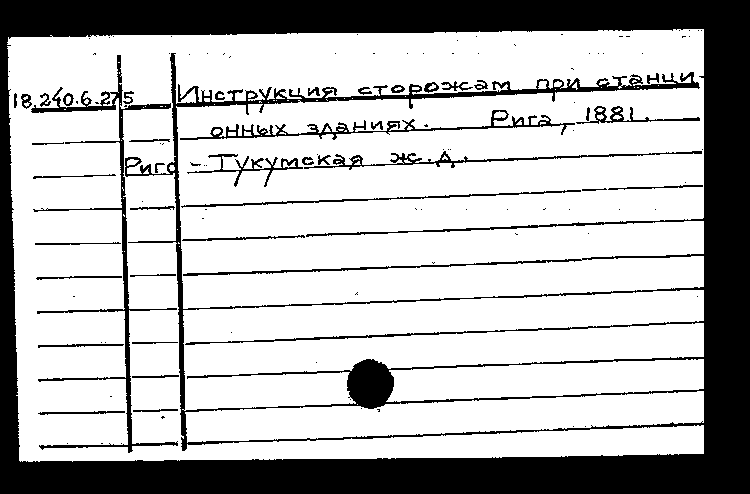 18.240.6.275 Инструкция сторожам при станци-
онных зданиях. Рига, 1881.
Риго - Тукумская ж.д.